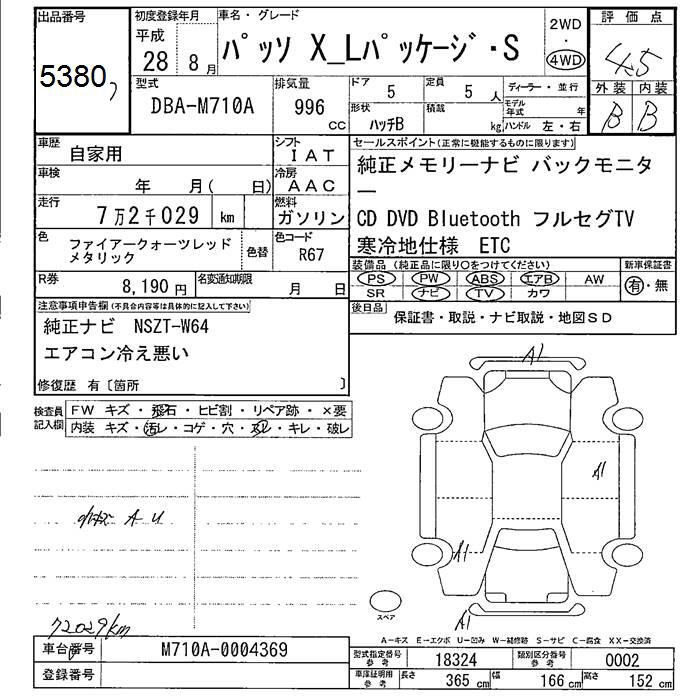 出品番号
5380
初度登録年月
平成
28 8 月
車名・グレード
パッソ X_Lパッケージ・S
2WD
・
4WD
評価点
4.5
外装 内装
B B
型式
DBA-M710A
排気量
996
CC
ドア
5
定員
5 人
形状
ハッチB
積載
kg
ディーラー・並行
モデル年式 年
ハンドル 左・右
車歴
自家用
シフト
I A T
車検
年 月( 日)
冷房
A A C
走行
7 万 2 千 029 km
燃料
ガソリン
色
ファイアークォーツレッド
メタリック
色替
色コード
R67
R券
8,190 円
名変通知期限
月 日
セールスポイント(正常に機能するものに限ります)
純正メモリーナビ バックモニタ
ー
CD DVD Bluetooth フルセグTV
寒冷地仕様 ETC
装備品 (純正品に限り〇をつけてください)
PS PW ABS エアB AW
SR ナビ TV カワ
新車保証書
有・無
後日品
保証書・取説・ナビ取説・地図SD
注意事項申告欄(不具合内容等は具体的に記入して下さい)
純正ナビ NSZT-W64
エアコン冷え悪い
修復歴 有〔箇所 〕
検査員
記入欄
FW キズ・飛石・ヒビ割・リペア跡・×要
内装 キズ・汚レ・コゲ・穴・スレ・キレ・破レ
A U
72029km
A1
A1
A1
A1
スペア
A-キズ E-エクボ U-凹み W-補修跡 S-サビ C-腐食 XX-交換済
車台番号
M710A-0004369
登録番号
型式指定番号
参考
18324
類別区分番号
参考
0002
車庫証明用
参考
長さ 365 cm 幅 166 cm 高さ 152 cm